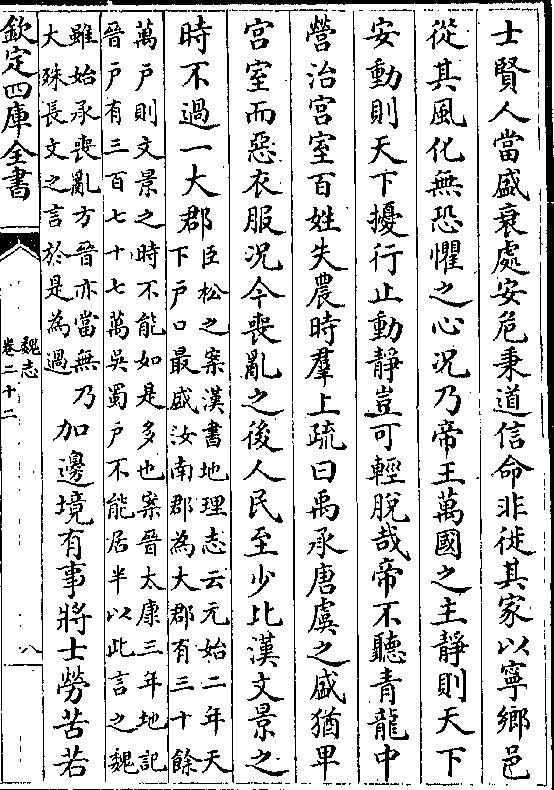 士賢人當盛衰處安危秉道信命非徙其家以寧鄉邑
從其風化無恐懼之心況乃帝王萬國之主靜則天下
安動則天下擾行止動靜豈可輕脫哉帝不聽青龍中
營治宫室百姓失農時羣上疏曰禹承唐虞之盛猶卑
宫室而惡衣服況今喪亂之後人民至少比漢文景之
時不過一大郡
臣松之案漢書地理志云元始二年天
下戸口最盛汝南郡為大郡有三十餘
萬戸則文景之時不能如是多也案晉太康三年地記
晉戸有三百七十七萬吳蜀戸不能居半以此言之魏
雖始承喪亂方晉亦當無乃
大殊長文之言於是為過
加邊境有事將士勞苦若
欽定四庫全書
魏志
卷二十二
八